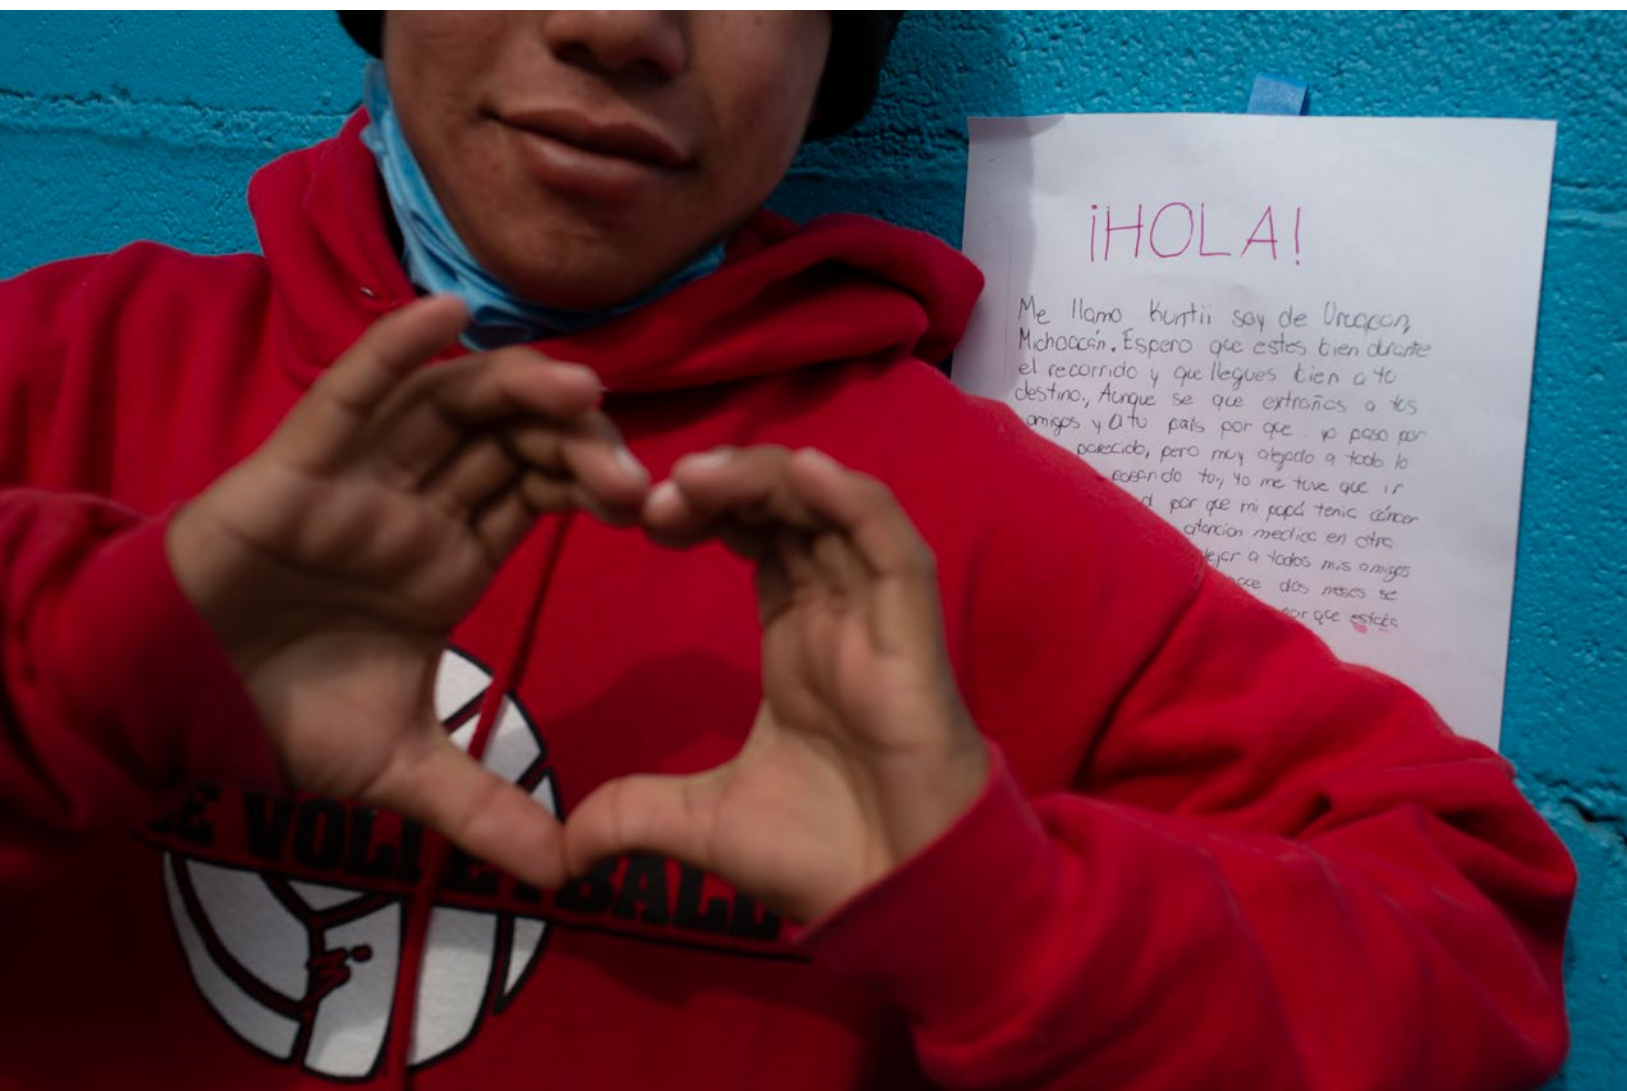 ¡HOLA!
Me llamo Kuntii soy de Uruapan,
Michoacán. Espero que estes bien durante
el recorrido y que llegues bien a tu
destino., Aunque se que extrañas a tus
amigos y a tu país por que yo paso por
parecido, pero muy alejado a todo lo
pasando tu., Yo me tuve que ir
por que mi papá tenia cáncer
atencion medica en otra
dejar a todos mis amigos
hace dos meses se
porque estais
E VOLLEYBALL